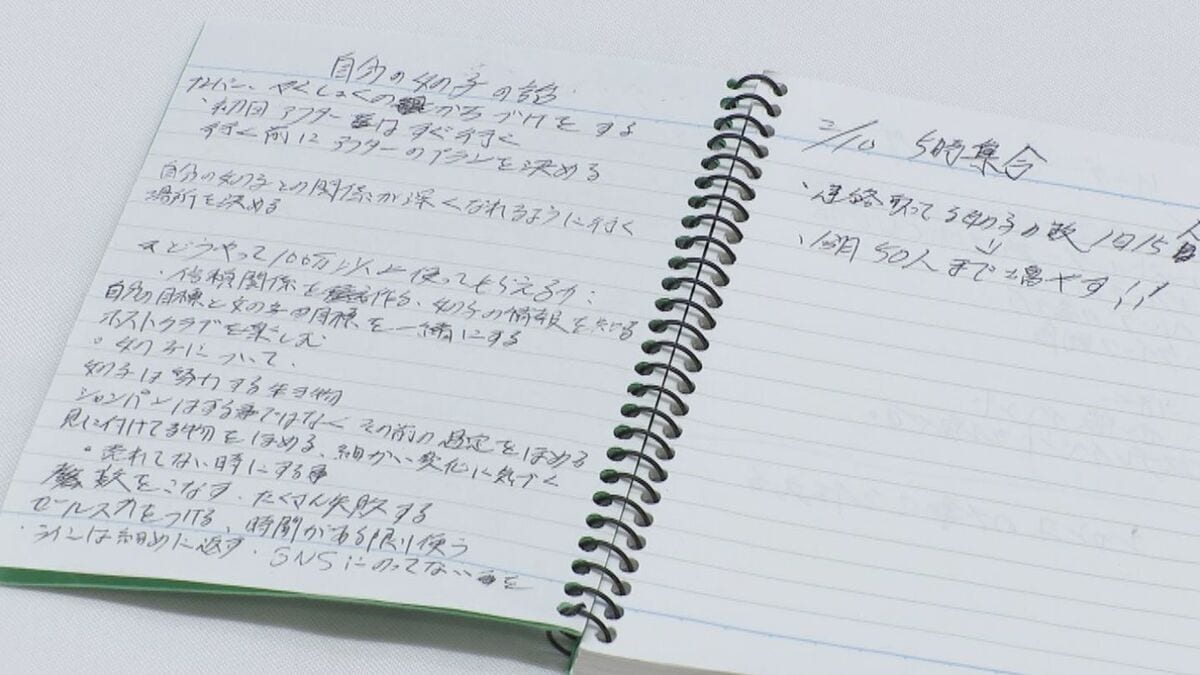 自分の女の子の話
ナンバー、やくしょくのかたづけをする
・初回アフターはすぐ行く
行く前にアフターのプランを決める
自分の女の子との関係が深くなれるように行く
場所を決める
どうやって100万以上使ってもらえるか:
・信頼関係を作る、女の子の情報を知る
自分の目標と女の子の目標を一緒にする
ホストクラブを楽しむ
。女の子について、
女の子は努力する生き物
シャンパンはする事ではなくその前の過定をほめる
見に付けてる物をほめる、細かい変化に気づく
。売れてない時にする事
数をこなす・たくさん失敗する
セールス力をつける、時間がある限り使う
・ラインは細めに返す・SNSにのってない
2/10 5時集合
・連絡取ってる女の子の数 1日15人
↓
、今月50人まで増やす!!